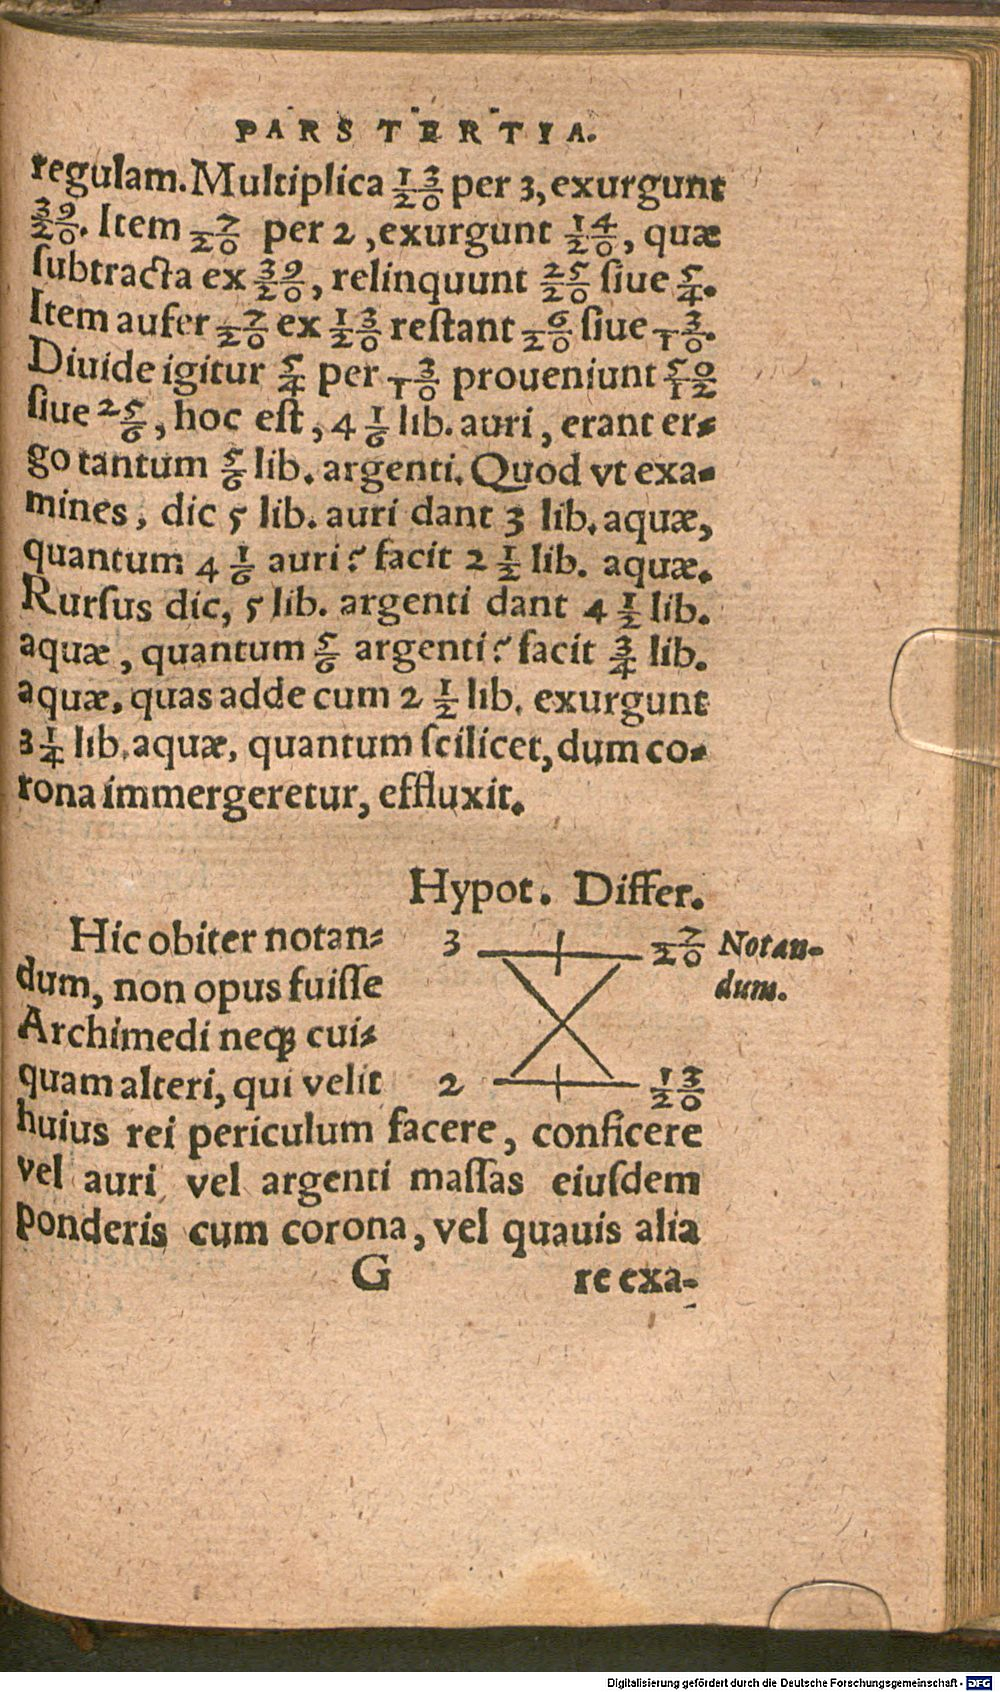 PARS TERTIA.
regulam. Multiplica 13/20 per 3, exurgunt
39/20. Item 7/20 per 2, exurgunt 14/20, quæ
ſubtracta ex 39/20, relinquunt 25/20 ſiue 5/4.
Item aufer 7/20 ex 13/20 reſtant 6/20 ſiue 3/10.
Diuide igitur 5/4 per 3/10 proueniunt 50/12
ſiue 25/6, hoc eſt, 4 1/6 lib. auri, erant er-
go tantum 5/6 lib. argenti. Quod vt exa-
mines, dic 5 lib. auri dant 3 lib. aquæ,
quantum 4 1/6 auri? facit 2 1/2 lib. aquæ.
Rurſus dic, 5 lib. argenti dant 4 1/2 lib.
aquæ, quantum 5/6 argenti? facit 3/4 lib.
aquæ, quas adde cum 2 1/2 lib. exurgunt
3 1/4 lib. aquæ, quantum ſcilicet, dum co-
rona immergeretur, effluxit.
Hypot. Differ.
Hic obiter notan-
dum, non opus fuiſſe
Archimedi neqꝫ cui-
quam alteri, qui velit
3 7/20
2 13/20
Notan-
dum.
huius rei periculum facere, conficere
vel auri vel argenti maſſas eiuſdem
ponderis cum corona, vel quauis alia
G re exa-
Digitalisierung gefördert durch die Deutsche Forschungsgemeinschaft - DFG